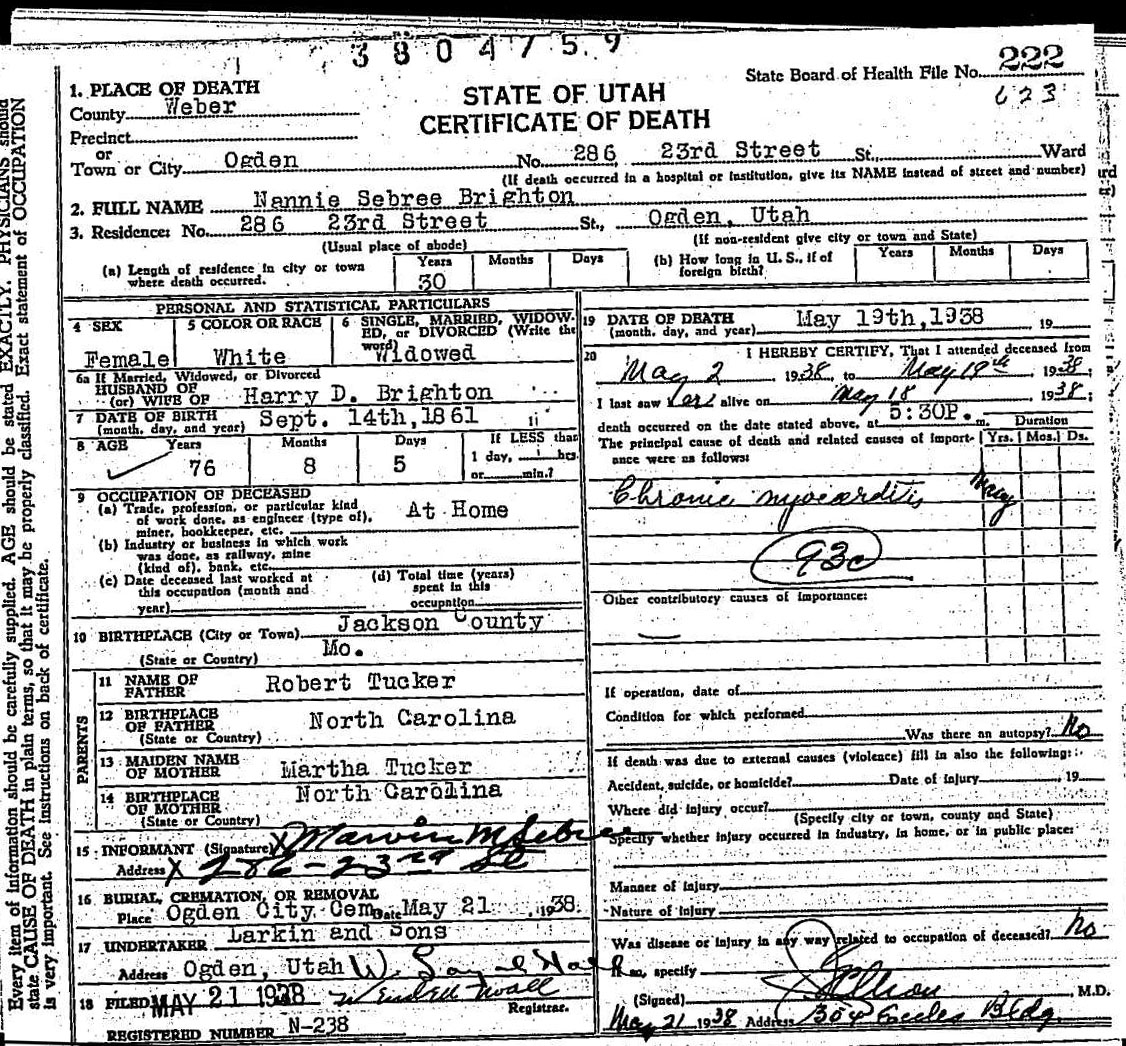 3 8 0 4 7 5 9
State Board of Health File No. 222
623
1. PLACE OF DEATH
County Weber
STATE OF UTAH
CERTIFICATE OF DEATH
Precinct
or
Town or City Ogden No. 286 23rd Street St., Ward
(If death occurred in a hospital or institution, give its NAME instead of street and number)
2. FULL NAME Nannie Sebree Brighton
3. Residence: No. 286 23rd Street St., Ogden, Utah
(Usual place of abode) (If non-resident give city or town and State)
(a) Length of residence in city or town where death occurred. Years 30 Months Days
(b) How long in U. S., if of foreign birth? Years Months Days
PERSONAL AND STATISTICAL PARTICULARS
4 SEX Female
5 COLOR OR RACE White
6 SINGLE, MARRIED, WIDOWED, or DIVORCED (Write the word) Widowed
6a If Married, Widowed, or Divorced
HUSBAND OF
(or) WIFE OF Harry D. Brighton
7 DATE OF BIRTH
(month, day, and year) Sept. 14th, 1861
8 AGE Years 76 Months 8 Days 5 If LESS than 1 day, hrs. or min.?
9 OCCUPATION OF DECEASED
(a) Trade, profession, or particular kind
of work done, as engineer (type of),
miner, bookkeeper, etc. At Home
(b) Industry or business in which work
was done, as railway, mine
(kind of), bank, etc.
(c) Date deceased last worked at
this occupation (month and
year)
(d) Total time (years)
spent in this
occupation
10 BIRTHPLACE (City or Town) Jackson County
(State or Country) Mo.
PARENTS
11 NAME OF
FATHER Robert Tucker
12 BIRTHPLACE
OF FATHER North Carolina
(State or Country)
13 MAIDEN NAME
OF MOTHER Martha Tucker
14 BIRTHPLACE
OF MOTHER North Carolina
(State or Country)
15 INFORMANT (Signature) X Marvin M Sebree
Address X 286-23rd St
16 BURIAL, CREMATION, OR REMOVAL
Place Ogden City Cem Date May 21 1938.
17 UNDERTAKER Larkin and Sons
Address Ogden, Utah
18 FILED MAY 21 1938
Registrar.
REGISTERED NUMBER N-238
19 DATE OF DEATH
(month, day, and year) May 19th, 1938 19
20 I HEREBY CERTIFY, That I attended deceased from
May 2, 1938, to May 19th, 1938;
I last saw her alive on May 18 1938;
death occurred on the date stated above, at 5:30P. m.
Duration
The principal cause of death and related causes of importance were as follows: Yrs. Mos. Ds.
Chronic myocarditis
93c
Other contributory causes of importance:
If operation, date of
Condition for which performed
Was there an autopsy? No
If death was due to external causes (violence) fill in also the following:
Accident, suicide, or homicide? Date of injury , 19
Where did injury occur?
(Specify city or town, county and State)
Specify whether injury occurred in industry, in home, or in public place:
Manner of injury
Nature of injury
Was disease or injury in any way related to occupation of deceased? No
If so, specify
(Signed) M.D.
May 21 1938 Address 304 Eccles Bldg
Every item of information should be carefully supplied. AGE should be stated EXACTLY. PHYSICIANS should
state CAUSE OF DEATH in plain terms, so that it may be properly classified. Exact statement of OCCUPATION
is very important. See instructions on back of certificate.